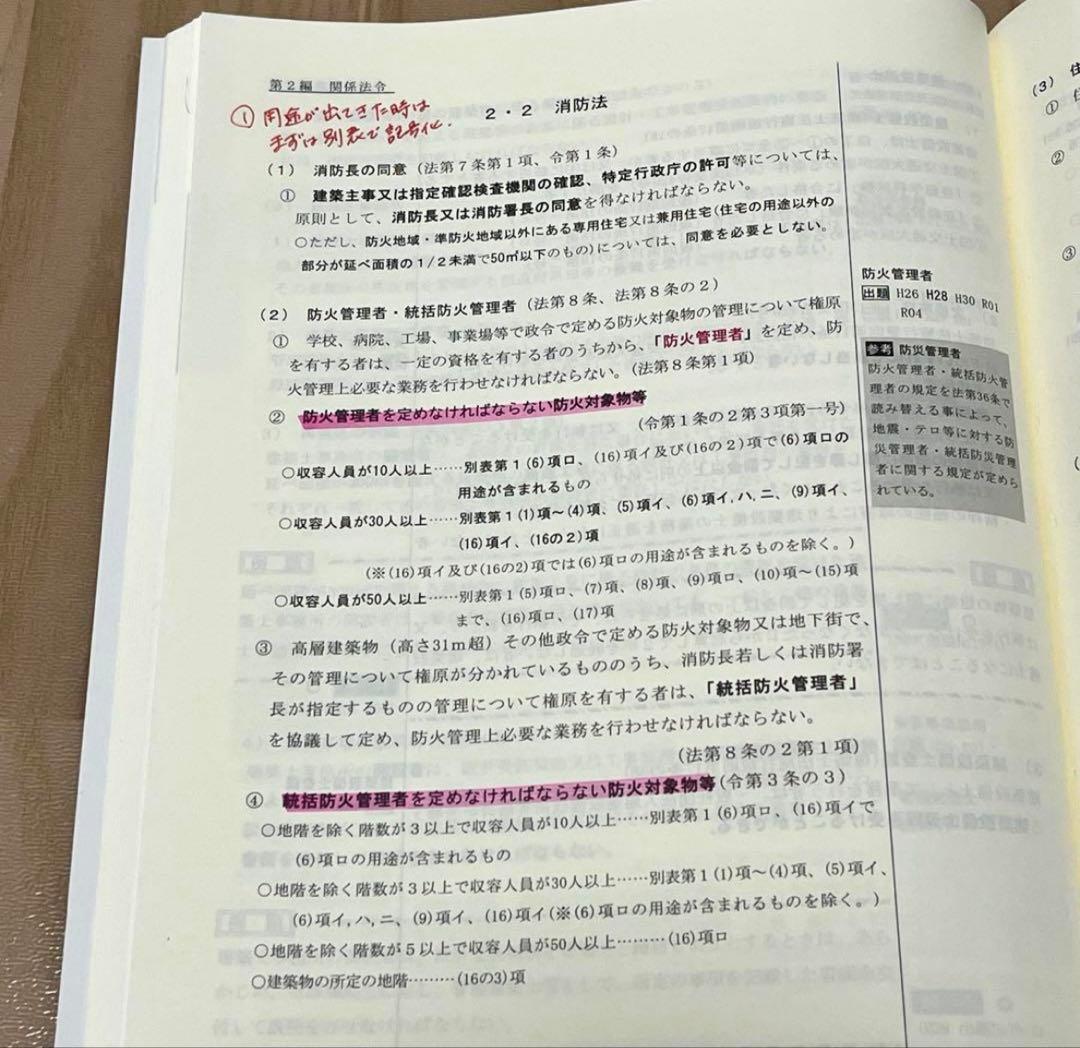 第2編　関係法令
① 用途が出てきた時は
まずは別表で記号化.
2・2　消防法
(1)　消防長の同意（法第7条第1項、令第1条）
①　建築主事又は指定確認検査機関の確認、特定行政庁の許可等については、
原則として、消防長又は消防署長の同意を得なければならない。
○ただし、防火地域・準防火地域以外にある専用住宅又は兼用住宅(住宅の用途以外の
部分が延べ面積の1/2未満で50㎡以下のもの)については、同意を必要としない。
(2)　防火管理者・統括防火管理者（法第8条、法第8条の2）
①　学校、病院、工場、事業場等で政令で定める防火対象物の管理について権原
を有する者は、一定の資格を有する者のうちから、「防火管理者」を定め、防
火管理上必要な業務を行わせなければならない。(法第8条第1項)
②　防火管理者を定めなければならない防火対象物等
(令第1条の2第3項第一号)
○収容人員が10人以上……別表第1(6)項ロ、(16)項イ及び(16の2)項で(6)項ロの
用途が含まれるもの
○収容人員が30人以上……別表第1(1)項～(4)項、(5)項イ、(6)項イ,ハ,ニ、(9)項イ、
(16)項イ、(16の2)項
(※(16)項イ及び(16の2)項では(6)項ロの用途が含まれるものを除く。)
○収容人員が50人以上……別表第1(5)項ロ、(7)項、(8)項、(9)項ロ、(10)項～(15)項
まで、(16)項ロ、(17)項
③　高層建築物（高さ31m超）その他政令で定める防火対象物又は地下街で、
その管理について権原が分かれているもののうち、消防長若しくは消防署
長が指定するものの管理について権原を有する者は、「統括防火管理者」
を協議して定め、防火管理上必要な業務を行わせなければならない。
(法第8条の2第1項)
④　統括防火管理者を定めなければならない防火対象物等(令第3条の3)
○地階を除く階数が3以上で収容人員が10人以上……別表第1(6)項ロ、(16)項イで
(6)項ロの用途が含まれるもの
○地階を除く階数が3以上で収容人員が30人以上……別表第1(1)項～(4)項、(5)項イ、
(6)項イ,ハ,ニ、(9)項イ、(16)項イ(※(6)項ロの用途が含まれるものを除く。)
○地階を除く階数が5以上で収容人員が50人以上………(16)項ロ
○建築物の所定の地階………(16の3)項
防火管理者
出題 H26 H28 H30 R01
R04
参考 防災管理者
防火管理者・統括防火管
理者の規定を法第36条で
読み替える事によって、
地震・テロ等に対する防
災管理者・統括防災管理
者に関する規定が定めら
れている。
(3)
①
②
③